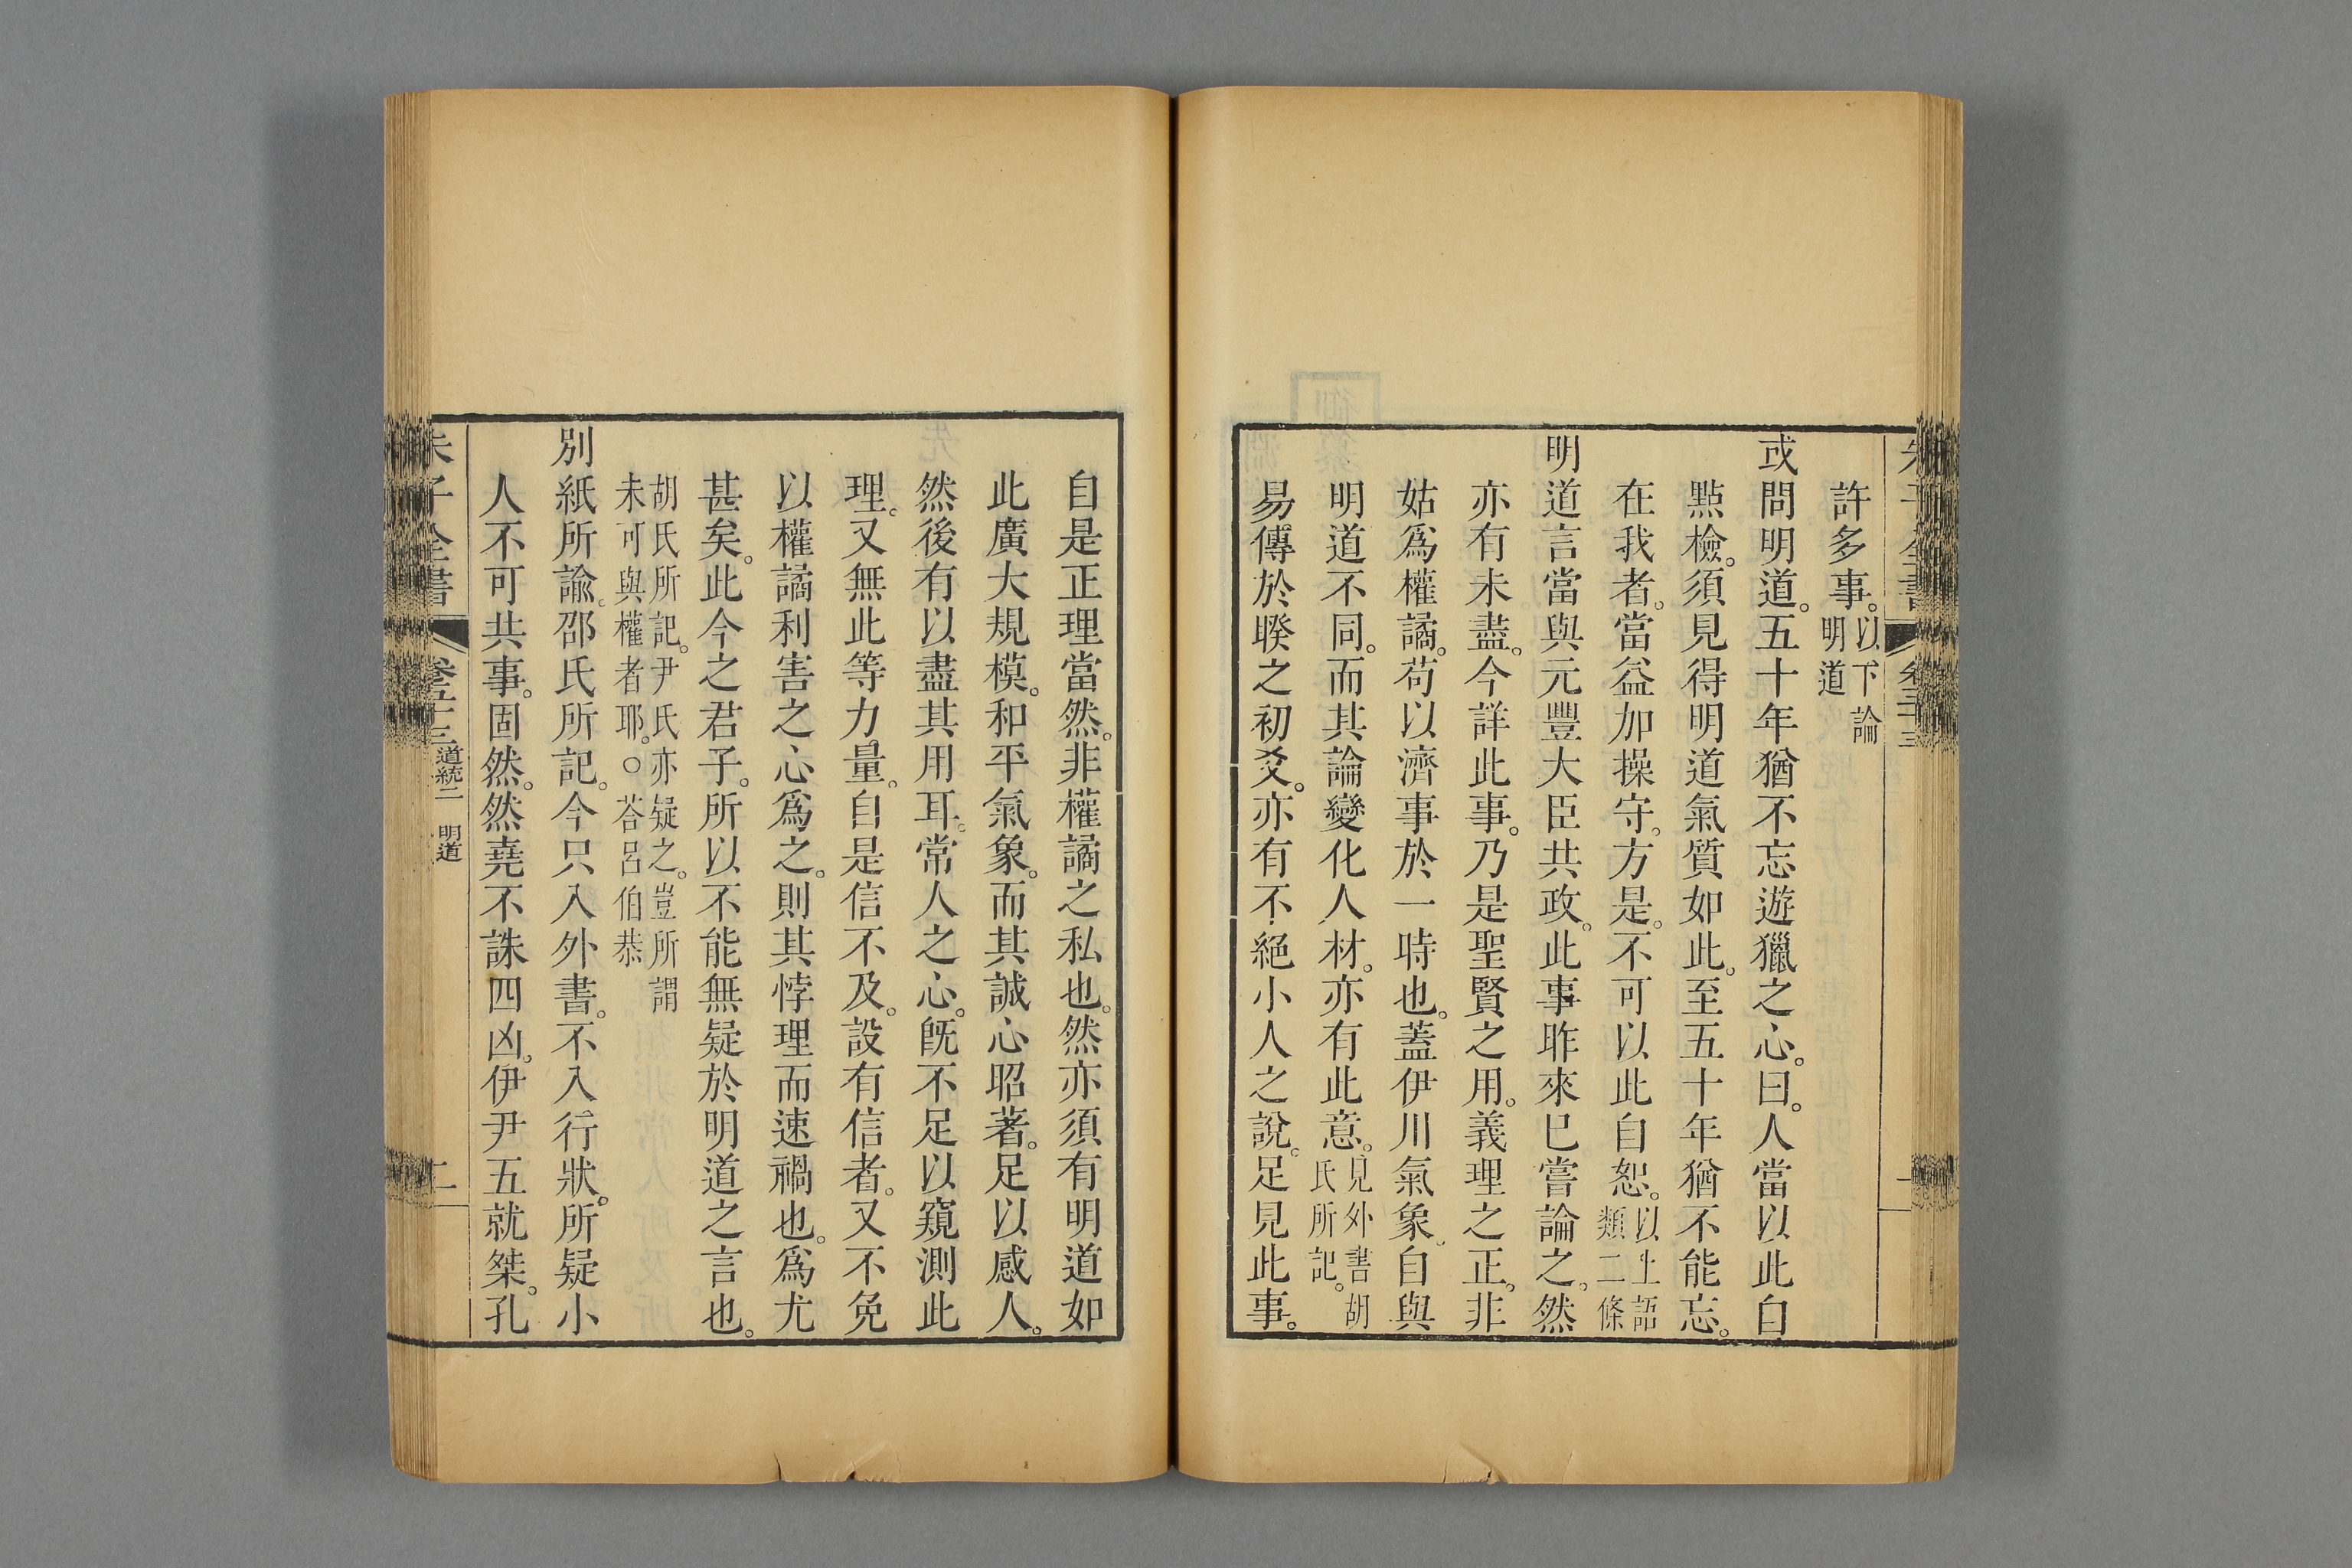 許多事。以下論明道
或問明道。五十年猶不忘遊獵之心。曰。人當以此自
點檢。須見得明道氣質如此。至五十年猶不能忘。
在我者。當益加操守。方是。不可以此自恕。以上語類二條
明道言當與元豐大臣共政。此事昨來已嘗論之。然
亦有未盡。今詳此事。乃是聖賢之用。義理之正。非
姑爲權譎。苟以濟事於一時也。蓋伊川氣象。自與
明道不同。而其論變化人材。亦有此意。見外書胡氏所記。
易傳於睽之初爻。亦有不絕小人之說。足見此事。
自是正理當然。非權譎之私也。然亦須有明道如
此廣大規模。和平氣象。而其誠心昭著。足以感人。
然後有以盡其用耳。常人之心。旣不足以窺測此
理。又無此等力量。自是信不及。設有信者。又不免
以權譎利害之心爲之。則其悖理而速禍也。爲尤
甚矣。此今之君子。所以不能無疑於明道之言也。
胡氏所記。尹氏亦疑之。豈所謂
未可與權者耶。○荅呂伯恭
別紙所諭。邵氏所記。今只入外書。不入行狀。所疑小
人不可共事。固然。然堯不誅四凶。伊尹五就桀。孔
朱子全書
道統二 明道
二